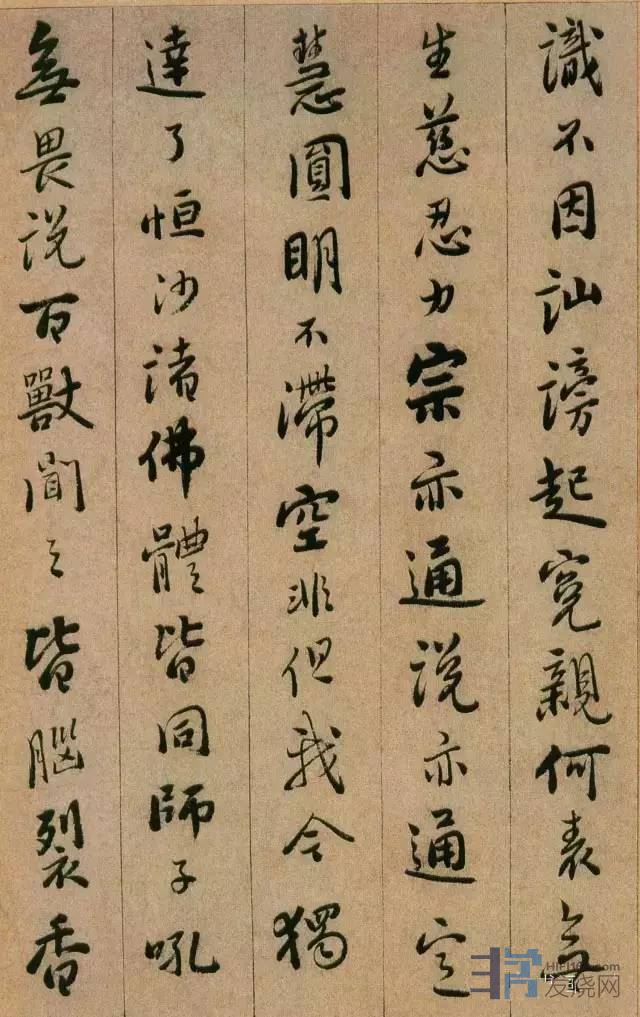 識不因訕謗起寃親何表無
生慈忍力宗亦通説亦通定
慧圓明不滯空非但我今獨
達了恒沙諸佛體皆同師子吼
無畏説百獸聞之皆腦裂香
HIFI168.com
发烧网